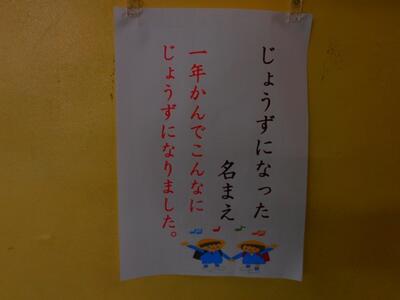 じょうずになった
名まえ
一年かんでこんなに
じょうずになりました。